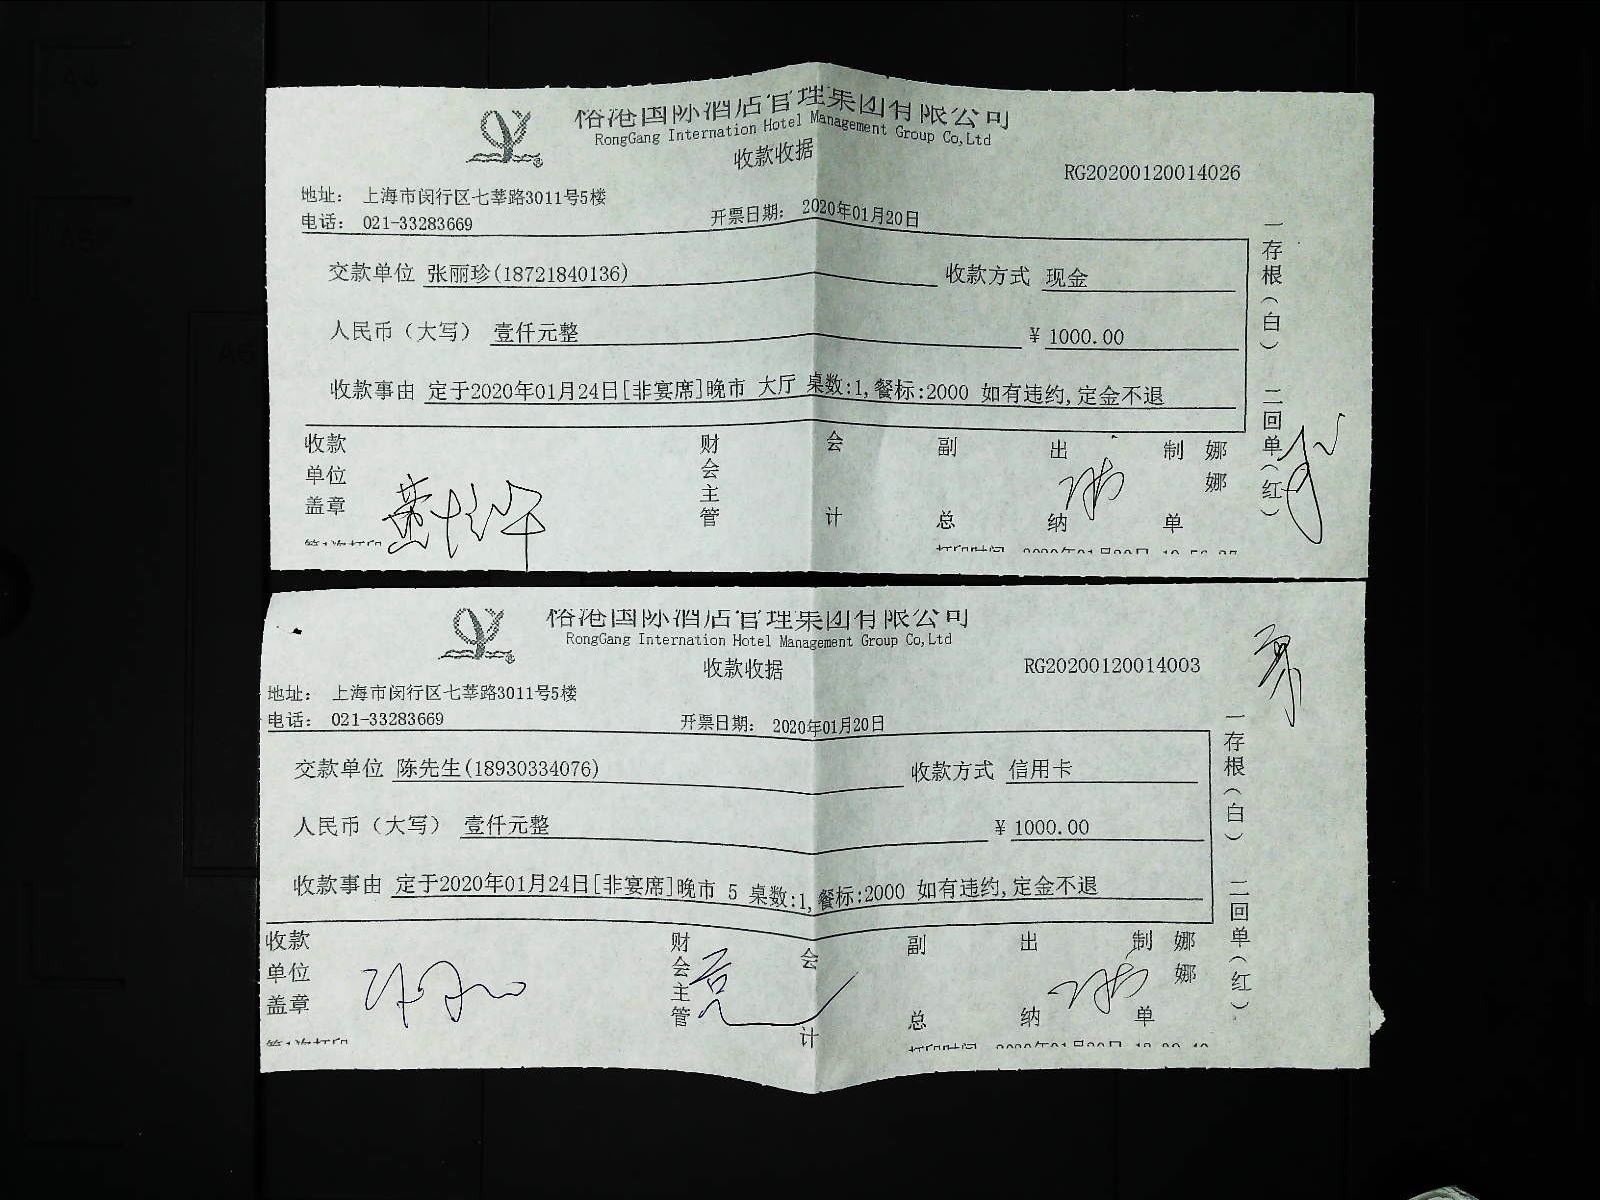 榕港国际酒店管理集团有限公司
RongGang Internation Hotel Management Group Co,Ltd
收款收据
RG20200120014026
地址： 上海市闵行区七莘路3011号5楼
电话： 021-33283669
开票日期： 2020年01月20日
交款单位 张丽珍(18721840136)
收款方式 现金
人民币（大写） 壹仟元整
¥ 1000.00
收款事由 定于2020年01月24日[非宴席]晚市 大厅 桌数:1,餐标:2000 如有违约,定金不退
收款单位盖章
财会主管
会计
副总
出纳
制单
娜娜
一存根（白） 二回单（红）
第1次打印
榕港国际酒店管理集团有限公司
RongGang Internation Hotel Management Group Co,Ltd
收款收据
RG20200120014003
地址： 上海市闵行区七莘路3011号5楼
电话： 021-33283669
开票日期： 2020年01月20日
交款单位 陈先生(18930334076)
收款方式 信用卡
人民币（大写） 壹仟元整
¥ 1000.00
收款事由 定于2020年01月24日[非宴席]晚市 5 桌数:1,餐标:2000 如有违约,定金不退
收款单位盖章
财会主管
会计
副总
出纳
制单
娜娜
一存根（白） 二回单（红）
第1次打印